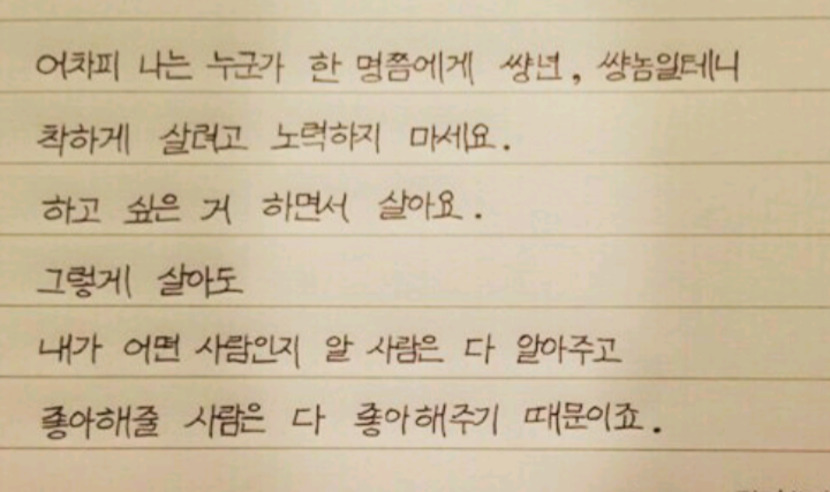 어차피 나는 누군가 한 명쯤에게 썅년, 썅놈일테니
착하게 살려고 노력하지 마세요.
하고 싶은 거 하면서 살아요.
그렇게 살아도
내가 어떤 사람인지 알 사람은 다 알아주고
좋아해줄 사람은 다 좋아해주기 때문이죠.